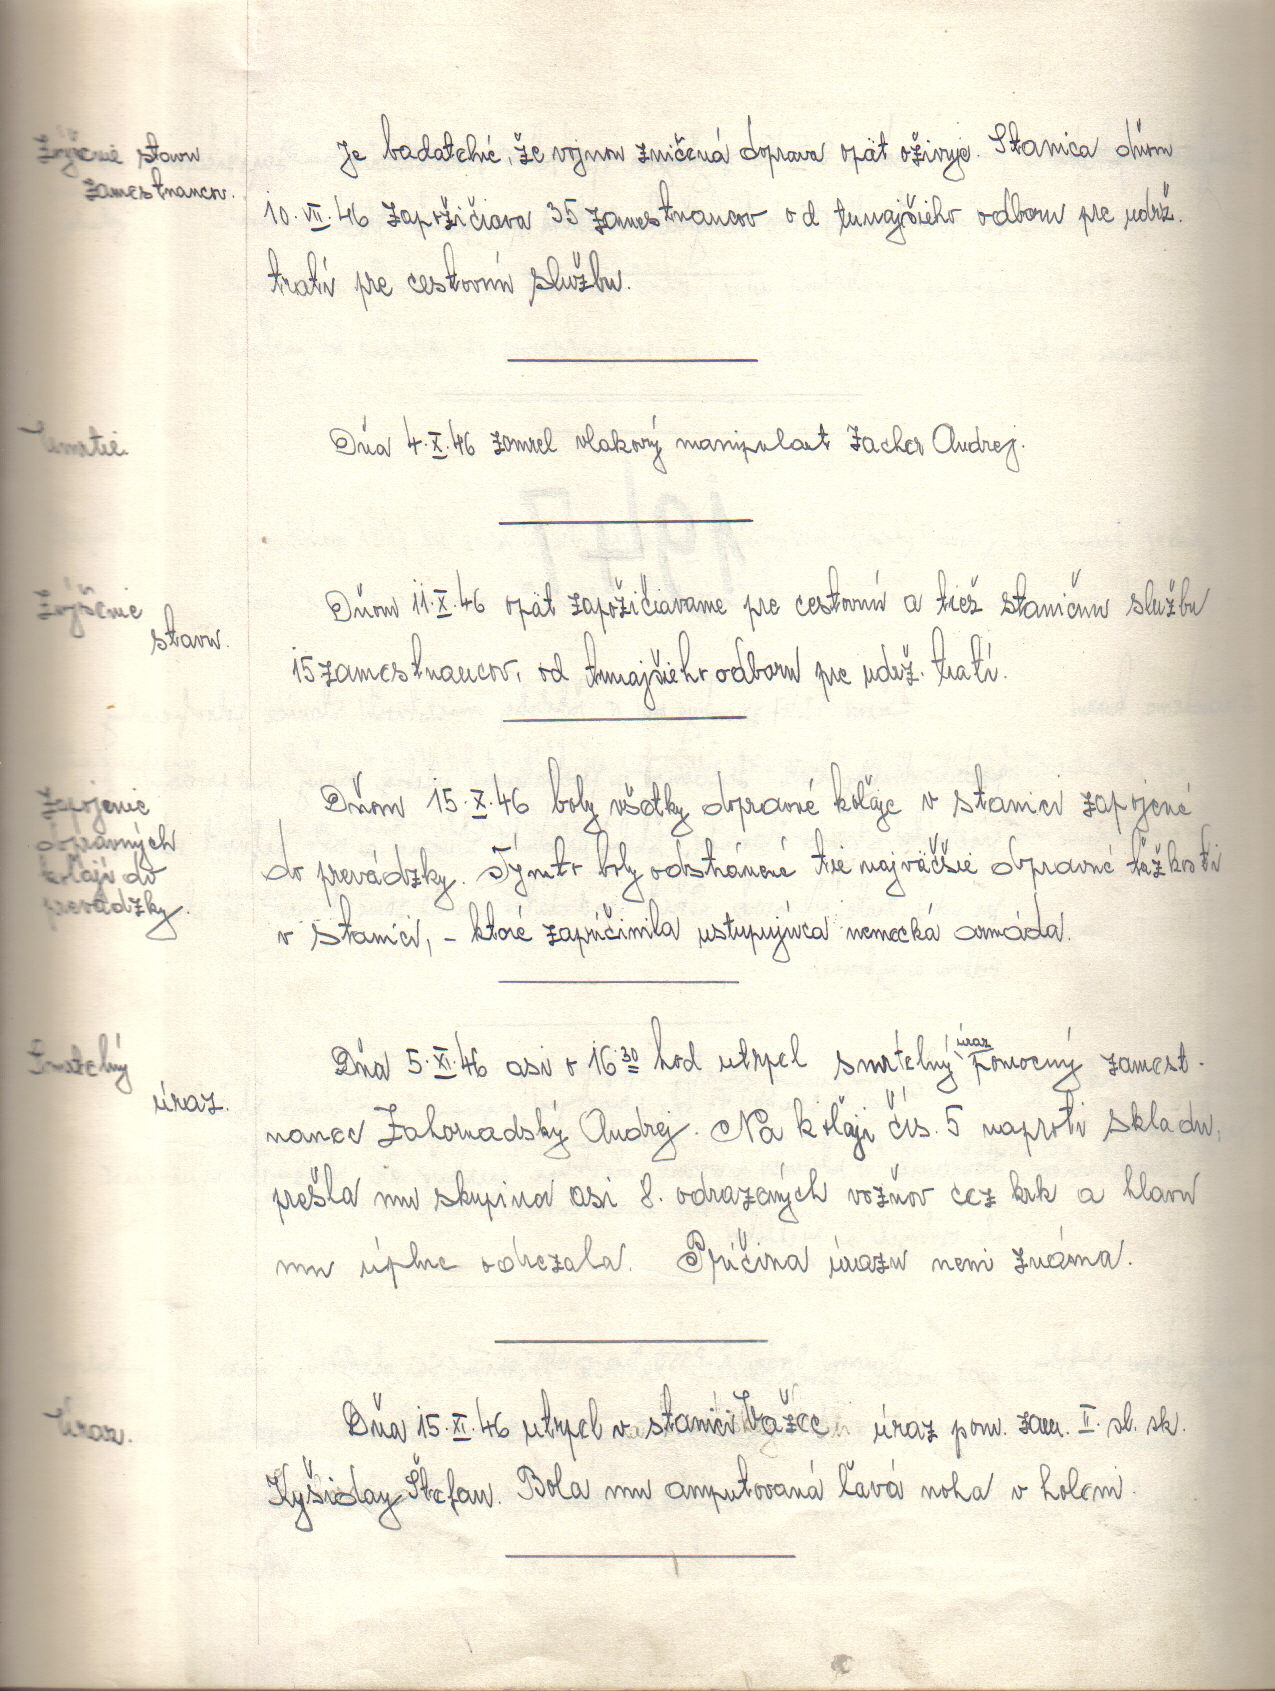 Zvýšenie stavu
zamestnancov.
Je badateľné, že vojnou zničená doprava opäť ožívuje. Stanica dňom
10.VII.46 zapožičiava 35 zamestnancov od tunajšieho odboru pre udrž.
tratí pre cestovnú službu.
Úmrtie.
Dňa 4.X.46 zomrel vlakový manipulant Zacher Andrej.
Zvýšenie
stavu.
Dňom 11.X.46 opäť zapožičiavame pre cestovnú a tiež staničnú službu
15 zamestnancov, od tunajšieho odboru pre udrž. tratí.
Zapojenie
dopravných
koľají do
prevádzky.
Dňom 15.X.46 boly všetky dopravné koľaje v stanici zapojené
do prevádzky. Týmto boly odstránené tie najväčšie dopravné ťažkosti
v stanici, - ktoré zapríčinila ustupujúca nemecká armáda.
Smrteľný
úraz.
Dňa 5.XI.46 asi o 16 30 hod utrpel smrteľný úraz pomocný zamest-
nanec Zahoradský Andrej. Na koľaji čís. 5 naproti skladu,
prešla mu skupina asi 8. odrazených vozňov cez krk a hlavu
mu úplne odrezala. Príčina úrazu neni známa.
Úraz.
Dňa 15.XI.46 utrpel v stanici Važec úraz pom. zam. II. sl. sk.
Štefan. Bola mu amputovaná ľavá noha v holeni.
1947